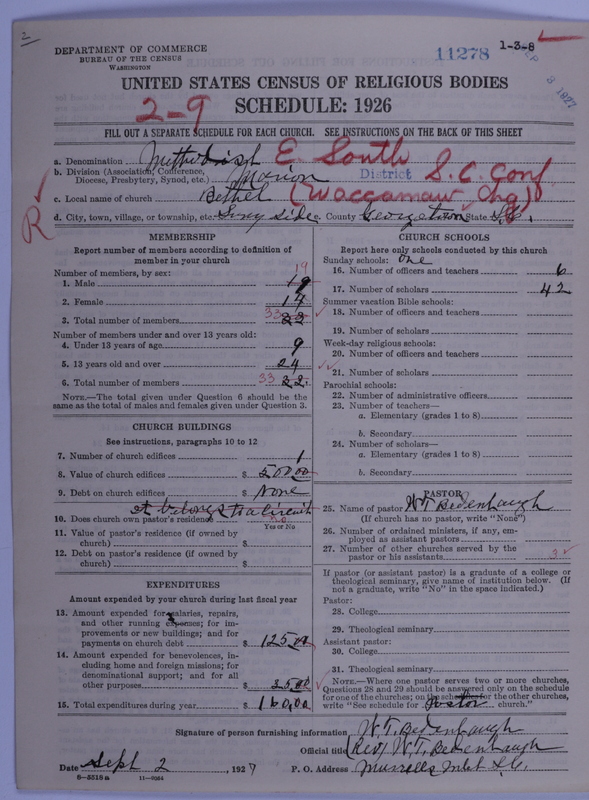 2
DEPARTMENT OF COMMERCE
BUREAU OF THE CENSUS
WASHINGTON
11278
1-3-8
SEP 3 1927
UNITED STATES CENSUS OF RELIGIOUS BODIES
2-9
SCHEDULE: 1926
FILL OUT A SEPARATE SCHEDULE FOR EACH CHURCH. SEE INSTRUCTIONS ON THE BACK OF THIS SHEET
a. Denomination E. South
b. Division (Association, Conference, Diocese, Presbytery, Synod, etc.) Marion District S.C. Conf
c. Local name of church Bethel (Waccamaw Chg)
R
d. City, town, village, or township, etc. Sunny side e. County Georgetown State S.C.
MEMBERSHIP
Report number of members according to definition of
member in your church
Number of members, by sex:
1. Male 19 19
2. Female 14
3. Total number of members 33
Number of members under and over 13 years old:
4. Under 13 years of age 9
5. 13 years old and over 24
6. Total number of members 33
NOTE.—The total given under Question 6 should be
same as the total of males and females given under Question 3.
CHURCH BUILDINGS
See instructions, paragraphs 10 to 12
7. Number of church edifices 1
8. Value of church edifices $ 500.00
9. Debt on church edifices $ None
it belongs to a circuit
10. Does church own pastor's residence? no
Yes or No
11. Value of pastor's residence (if owned by
church) $
12. Debt on pastor's residence (if owned by
church) $
EXPENDITURES
Amount expended by church during last fiscal year
13. Amount expended for salaries, repairs,
and other running expenses; for im-
provements or new buildings; and for
payments on church debt $ 125.00
14. Amount expended for benevolences, in-
cluding home and foreign missions; for
denominational support; and for all
other purposes $ 35.00
15. Total expenditures during year $ 160.00
CHURCH SCHOOLS
Report here only schools conducted by this church
Sunday schools: One
16. Number of officers and teachers 6
17. Number of scholars 42
Summer vacation Bible schools:
18. Number of officers and teachers
19. Number of scholars
Week-day religious schools:
20. Number of officers and teachers
21. Number of scholars
Parochial schools:
22. Number of administrative officers
23. Number of teachers—
a. Elementary (grades 1 to 8)
b. Secondary
24. Number of scholars—
a. Elementary (grades 1 to 8)
b. Secondary
PASTOR
25. Name of pastor W.T. Bedenbaugh
(If church has no pastor, write "None")
26. Number of ordained ministers, if any, em-
ployed as assistant pastors
27. Number of other churches served by the
pastor or his assistants 3
If pastor (or assistant pastor) is a graduate of a college or
theological seminary, give name of institution below. (If
not a graduate, write "No" in the space indicated.)
Pastor:
28. College
29. Theological seminary
Assistant pastor:
30. College
31. Theological seminary
NOTE.—Where one pastor serves two or more churches,
Questions 28 and 29 should be answered only on the schedule
for one of the churches; on the schedule for the other churches,
write "See schedule for Pastor church."
Signature of person furnishing information W.T. Bedenbaugh
Official title Rev. W.T. Bedenbaugh
Date Sept 2, 1927 P. O. Address Murrells Inlet S.C.
6-5518a 11-9064